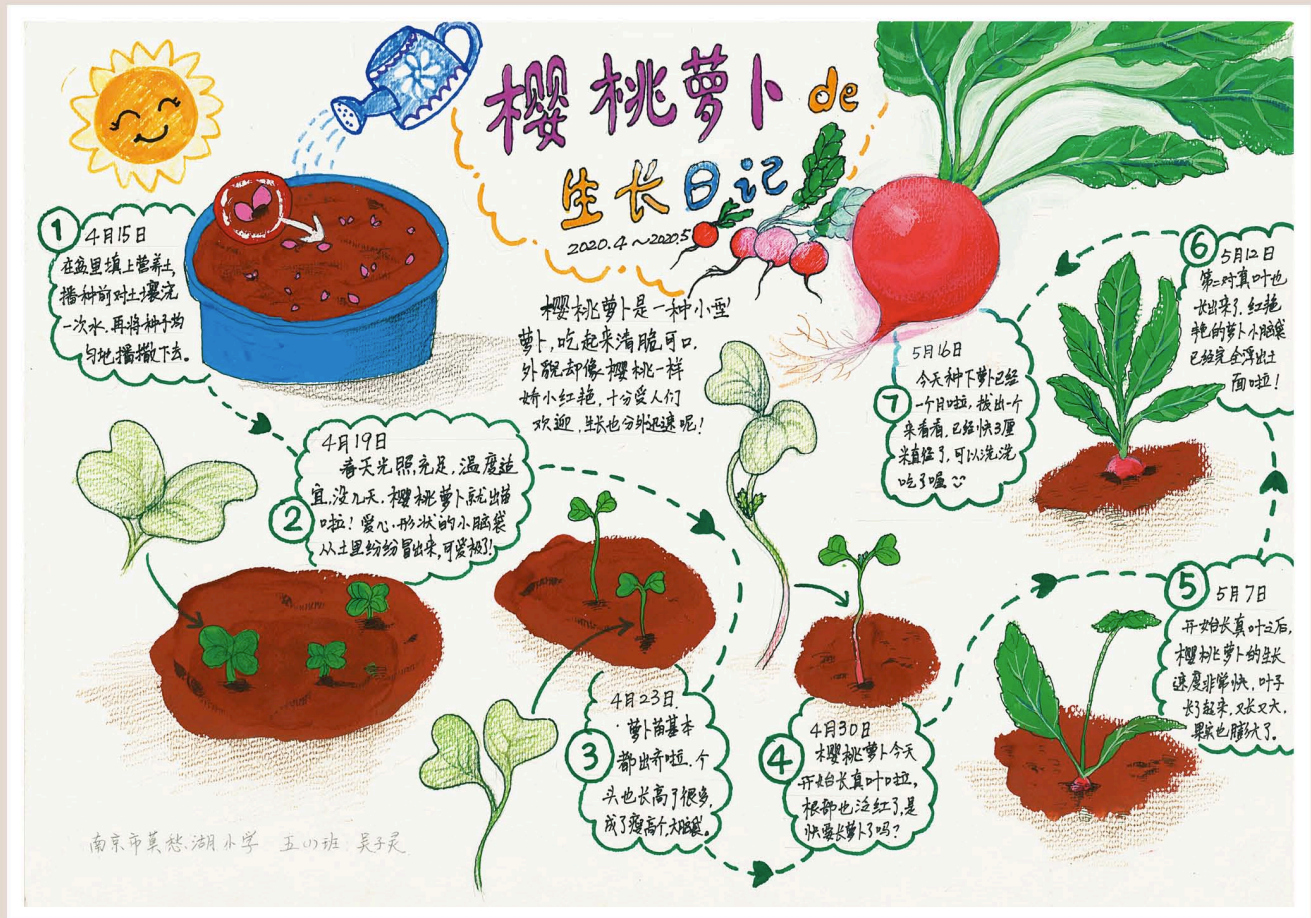 樱桃萝卜de
生长日记
2020.4～2020.5
樱桃萝卜是一种小型
萝卜,吃起来清脆可口,
外貌却像樱桃一样
娇小红艳,十分受人们
欢迎,生长也分外迅速呢!
1
4月15日
在盆里填上营养土,
播种前对土壤浇
一次水,再将种子均
匀地播撒下去。
2
4月19日
春天光照充足,温度适
宜,没几天,樱桃萝卜就出苗
啦!爱心形状的小脑袋
从土里纷纷冒出来,可爱极了!
3
4月23日.
萝卜苗基本
都出齐啦,个
头也长高了很多,
成了瘦高个、大脑袋。
4
4月30日
樱桃萝卜今天
开始长真叶啦,
根部也泛红了,是
快要长萝卜了吗?
5
5月7日
开始长真叶之后,
樱桃萝卜的生长
速度非常快,叶子
长了起来,又长又大,
果实也膨大了。
6
5月12日
第二对真叶也
长出来了,红艳
艳的萝卜小脑袋
已经完全浮出土
面啦!
7
5月16日
今天种下萝卜已经
一个月啦,拔出一个
来看看,已经快3厘
米直径了,可以洗洗
吃了喔
南京市莫愁湖小学 五(1)班 吴子灵